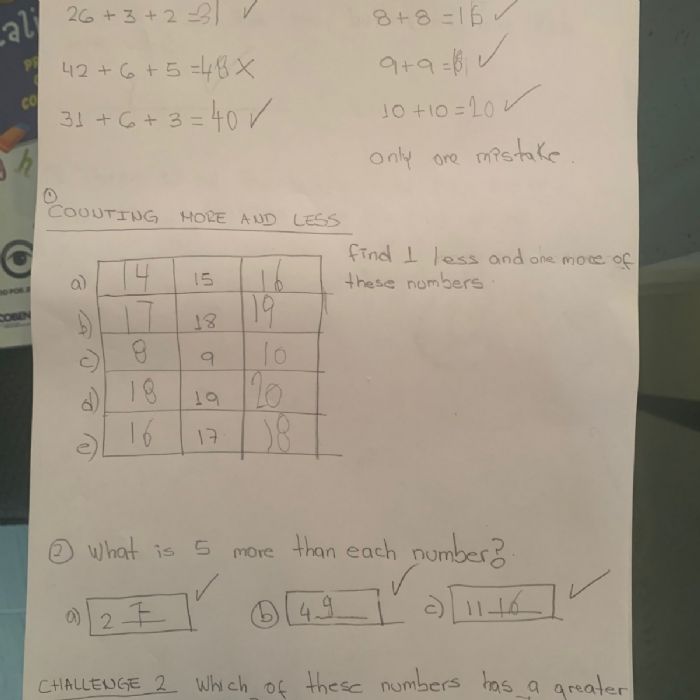 26 + 3 + 2 = 31 ✓
8 + 8 = 16 ✓
42 + 6 + 5 = 48 X
9 + 9 = 18 ✓
31 + 6 + 3 = 40 ✓
10 + 10 = 20 ✓
only one mistake.
① COUNTING MORE AND LESS
find 1 less and one more of
these numbers.
a) 14 15 16
b) 17 18 19
c) 8 9 10
d) 18 19 20
e) 16 17 18
② What is 5 more than each number?
a) 2 7 ✓ b) 4 9 ✓ c) 11 16 ✓
CHALLENGE 2 Which of these numbers has a greater